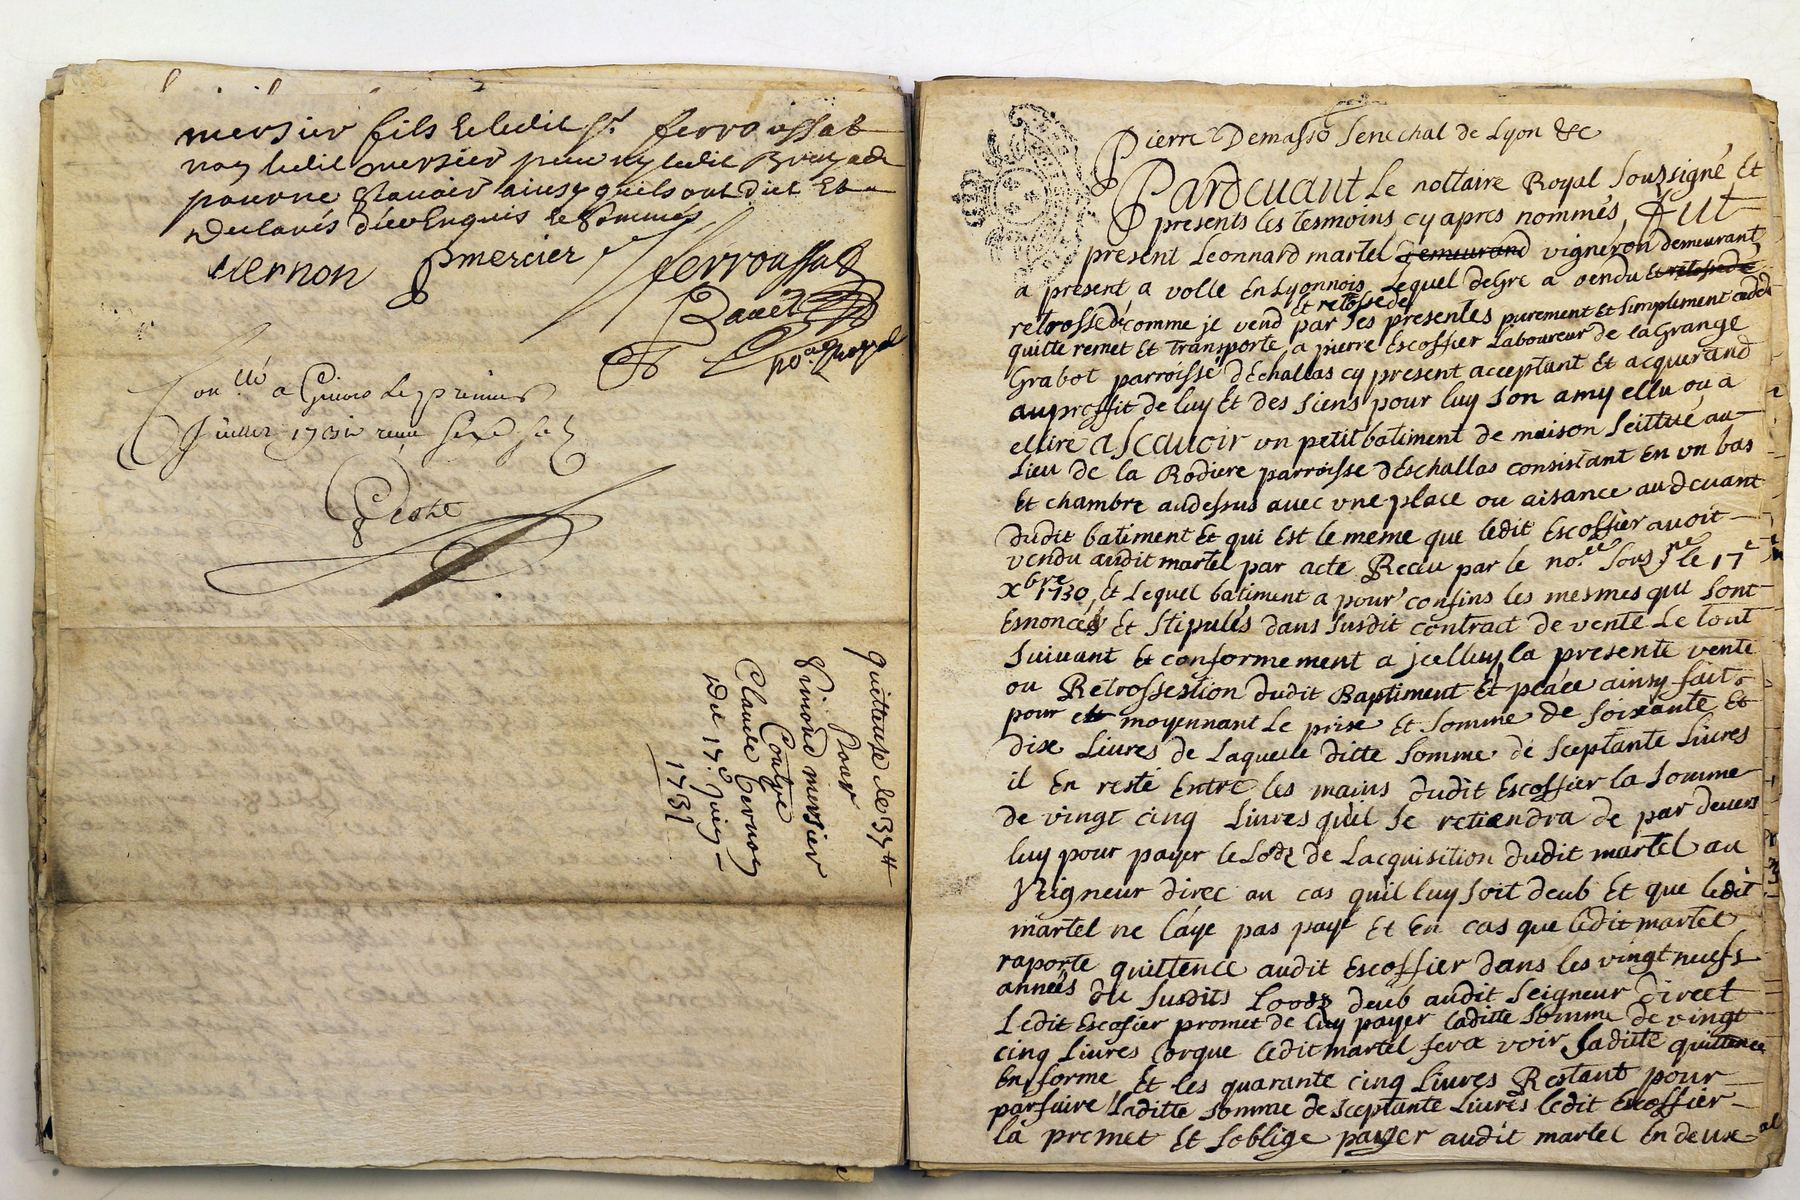 mersier fils & ledit Sr. ferroussat
non ledit mersier pere ny ledit
pour ne sçavoir ainsy quils ont dit Et
Declarés d'ice Enquis & sommés
vernon pmercier ferroussat
no.re Royal
Con.llé a Givors le premier
Juillet 1731 receu
quittance de 33 ll
pour
Simond mersier
Contre
Claude Vernon
Du 17.e Juin
1731
Pierre Demasso Senechal de Lyon &c
Pardevant Le nottaire Royal Soussigné Et
presents les tesmoins cy apres nommés, fut
present Leonnard martel demeurand vigneron demeurant
a present a volle En Lyonnois Lequel de Gre a vendu Et retossede
et retossede
retrossedé comme je vend par ses presentes purement et simplement cedde
quitte remet Et transporte a pierre Escoffier Laboureur de la Grange
Grabot parroisse dEchallas cy present acceptant Et acquerand
au proffit de luy Et des siens pour luy son amy ellu ou a
ellire ascavoir un petit batiment de maison seittué au
Lieu de la Rodiere parroisse dEschallas consistant En un bas
Et chambre audessus avec une place ou aisance au devant
dudit batiment Et qui Est le meme que ledit Escoffier avoit
vendu audit martel par acte Receu par le no.re sousne le 17e
Xbre 1730, Et Lequel batiment a pour confins les mesmes qui sont
Esnoncés Et stipulés dans susdit contract de vente Le tout
suivant Et conformement a jcelluy la presente vente
ou Retrossestion dudit Baptiment Et place ainsy fait
pour et moyennant Le prise Et somme de soixante Et
dix Livres de Laquelle ditte somme de sceptante Livres
il En reste Entre les mains dudit Escoffier la somme
de vingt cinq Livres quil se retiendra de par devers
luy pour payer le Lods de Lacquisition dudit martel au
Seigneur direc au cas quil luy soit deub Et que ledit
martel ne l'aye pas payé Et En cas que ledit martel
raporte quittence audit Escoffier dans les vingt neufs
années du susdits Loods deub audit Seigneur direct
Ledit Escofier promet de luy payer laditte somme de vingt
cinq Livres lorque ledit martel fera voir saditte quittence
En forme Et les quarante cinq Livres Restant pour
parfaire laditte somme de sceptante Livres ledit Escoffier
la promet Et soblige payer audit martel En deux